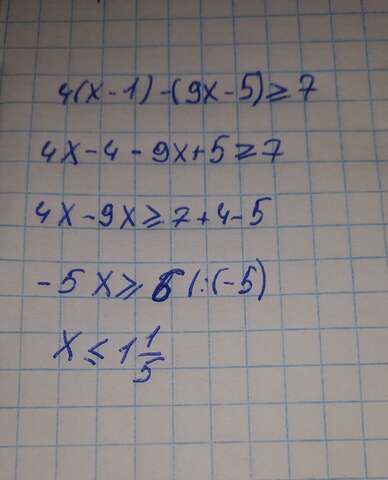 4(x-1)-(9x-5)≥7
4x-4-9x+5≥7
4x-9x≥7+4-5
-5x≥6 |:(-5)
x≤1 1/5